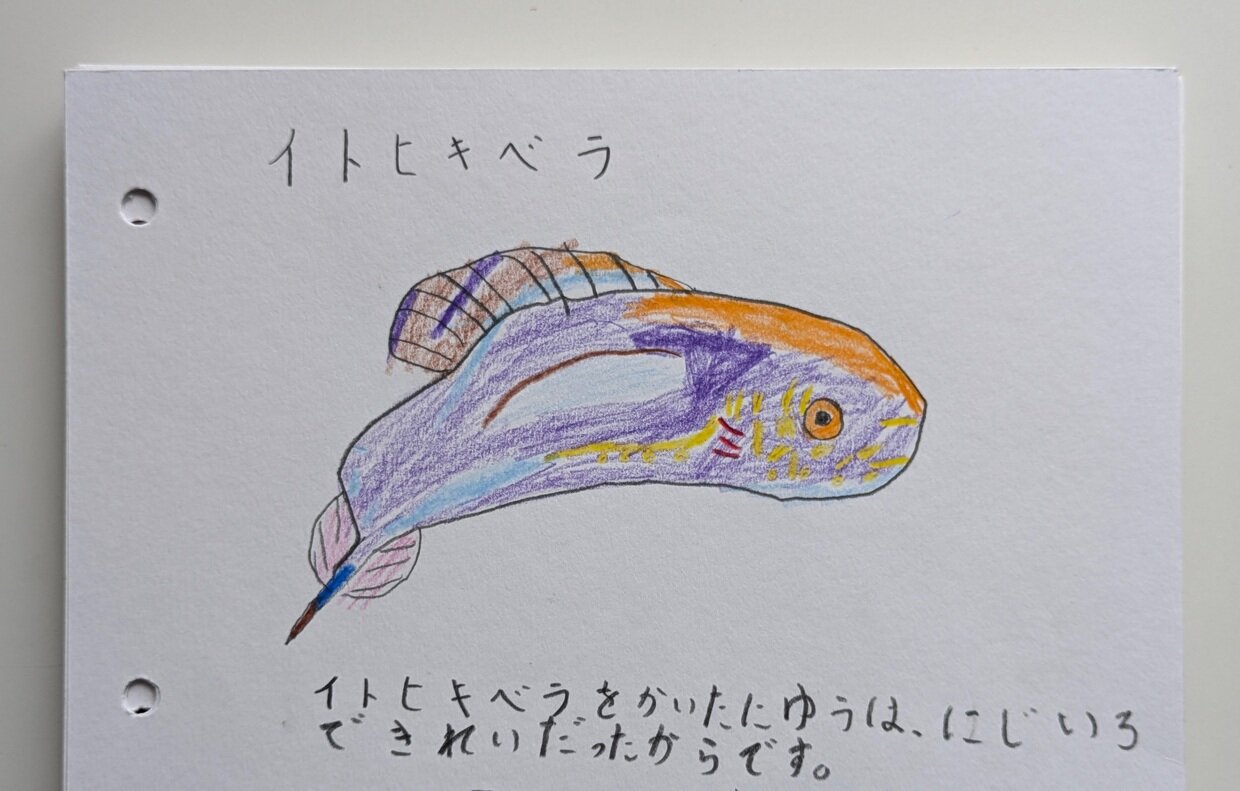 イトヒキベラ
イトヒキベラをかいたにゆうは、にじいろ
できれいだったからです。